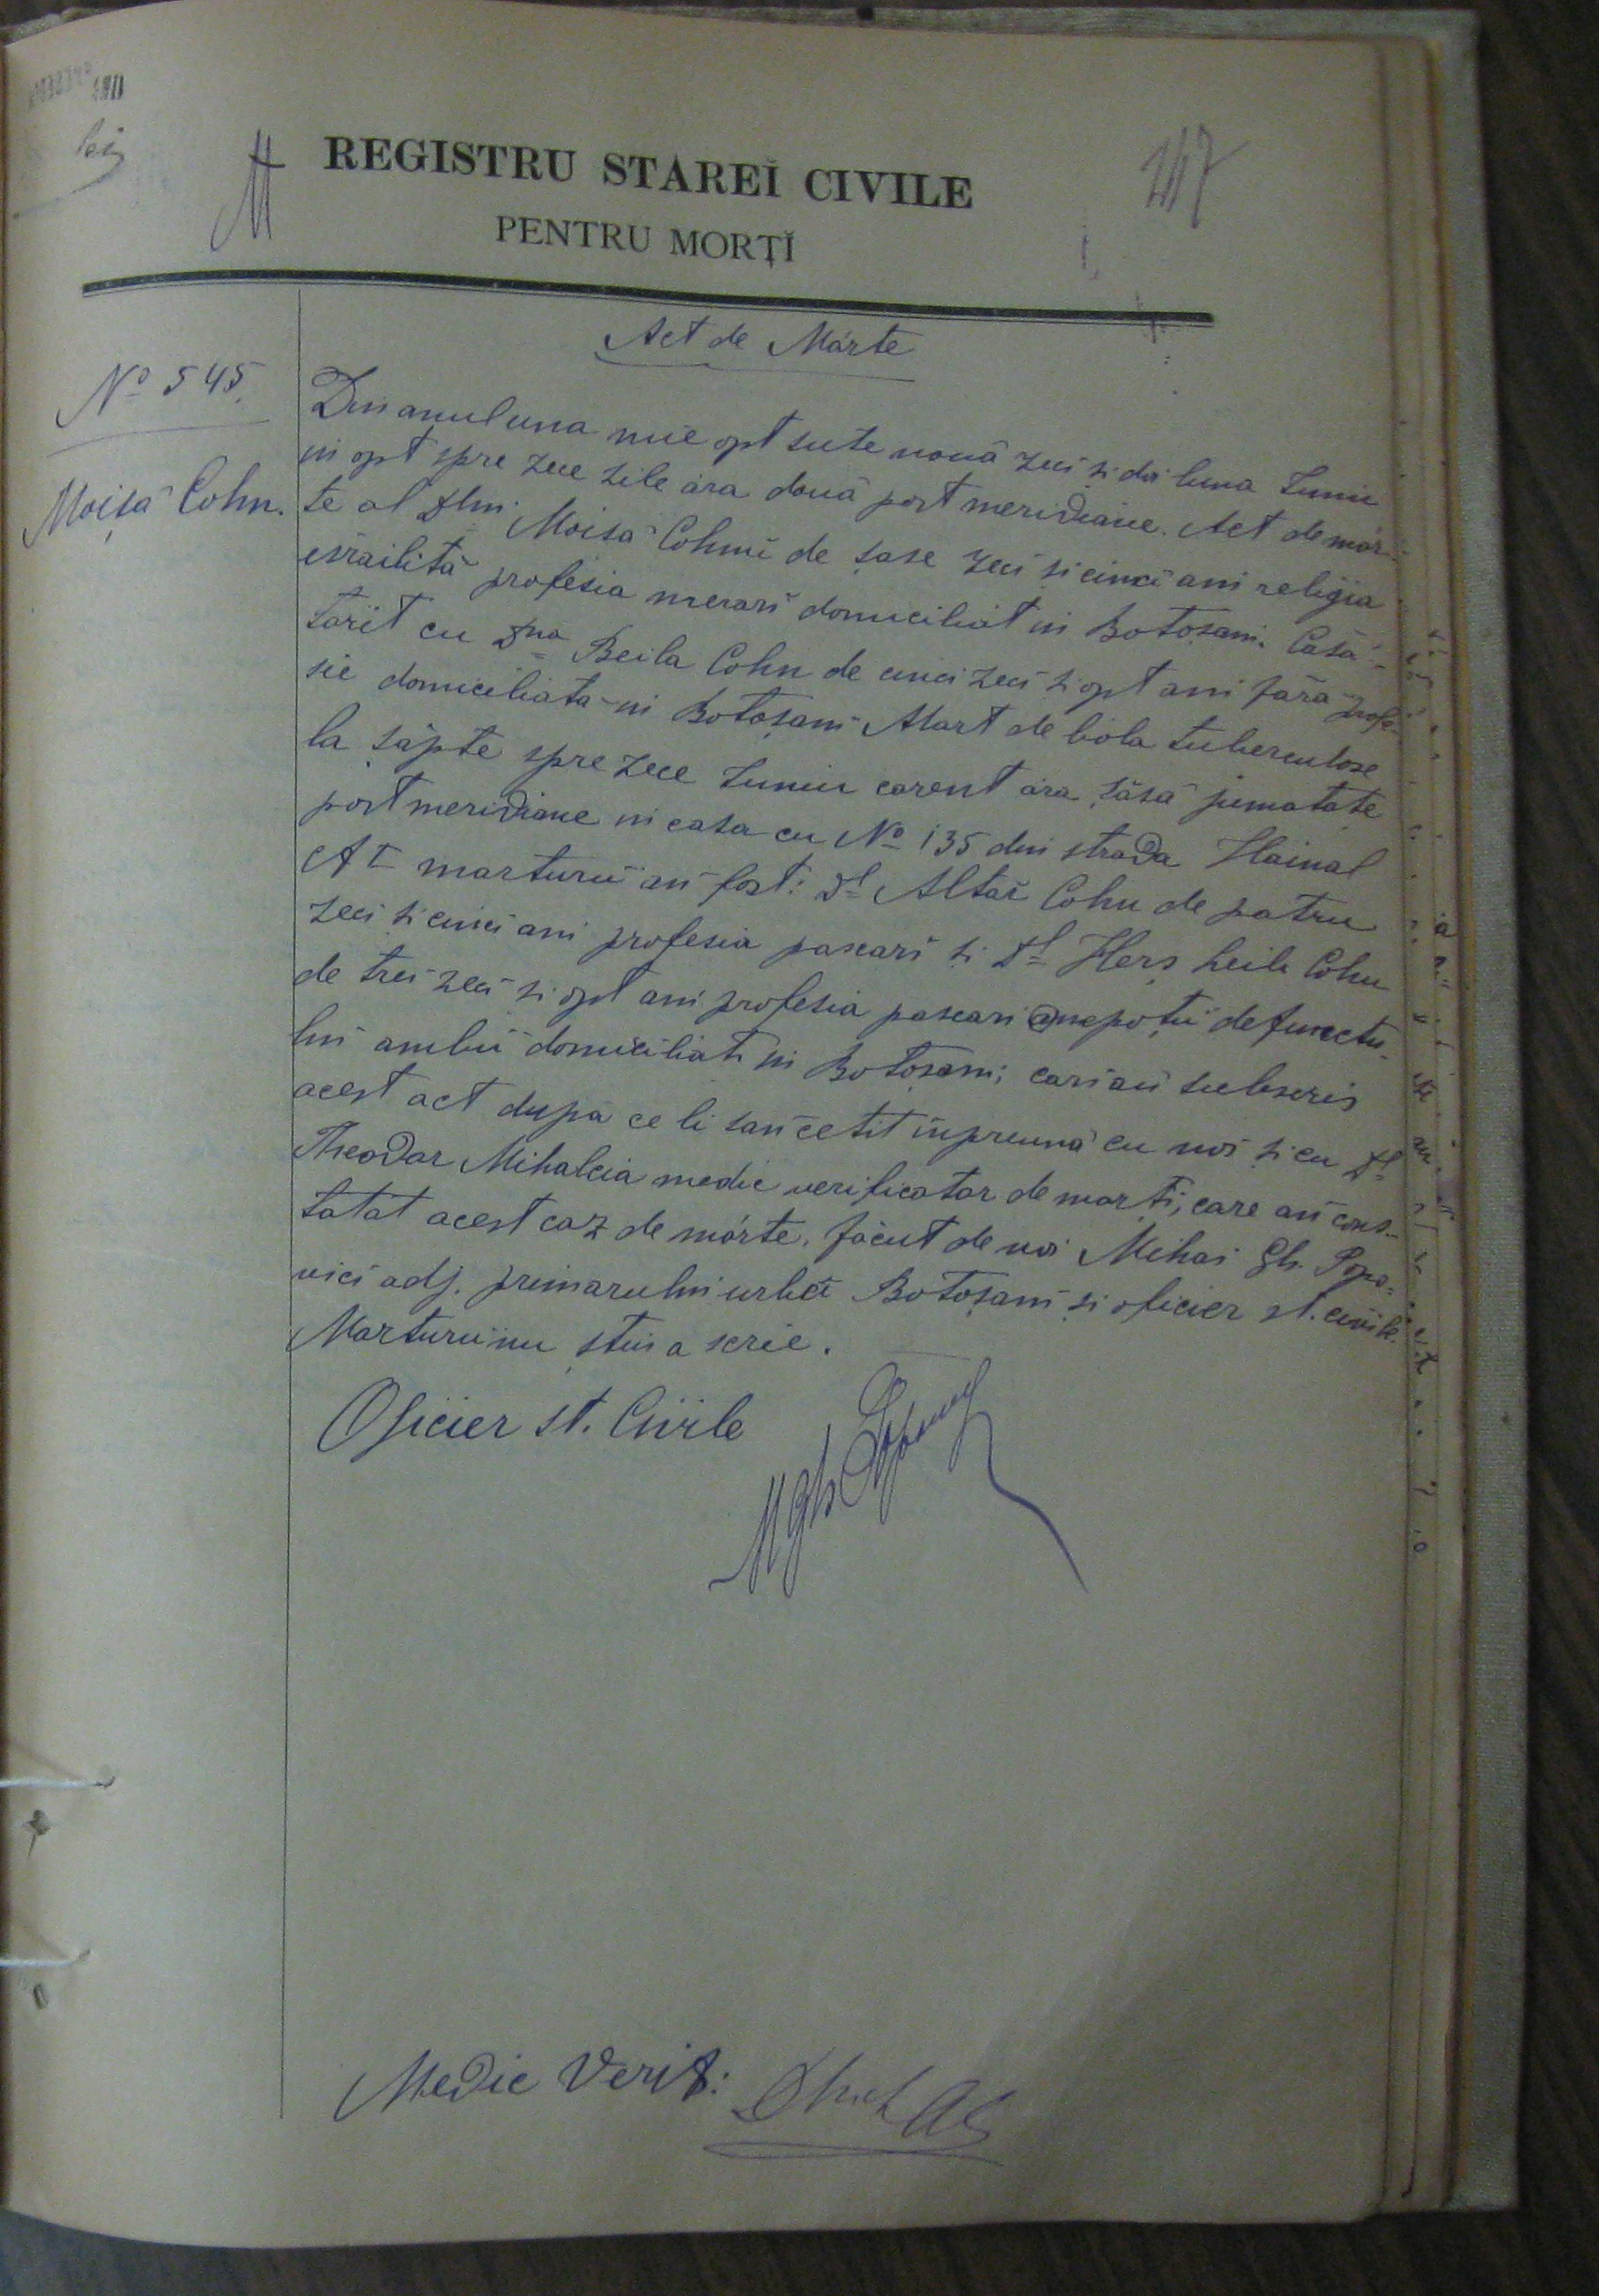 REGISTRU STAREĬ CIVILE
247
PENTRU MORȚĬ
Act de Mórte
No 545.
Moisă Cohn.
Din anul una mie opt sute nouă zeci și doi luna Iuniu
in opt spre zece zile óra două post meridiane. Act de mor-
te al Dlui Moisă Cohnŭ de șase zeci și cinci ani religia
israilită profesia merarĭ domiciliat in Botoșani. Căsă-
torit cu Dna Beila Cohn de cinci zeci și opt ani fără profe-
sie domiciliata in Botoșani Mort de bóla tuberculose
la șapte spre zece Iuniu corent óra șăsă jumatate
post meridiane in casa cu No 135 din strada Hainal
marturii aŭ fost: Dl Altăr Cohn de patru
zeci si cinci ani profesia pascarĭ și Dl Herș Leib Cohn
de trei zeci și opt ani profesia pascari nepoții defunctu-
lui ambii domiciliati in Botoșani; cari aŭ subscris
acest act după ce li saŭ cetit inpreună cu noi și cu Dl
Theodor Mihalcia medic verificator de morți, care aŭ cons-
tatat acest caz de mórte. făcut de noi Mihai Gh. Popo-
vici adj. primarului urbei Botoșani și oficier st. civile.
Marturii nu știu a scrie.
Oficier st. Civile
Medic Verif: